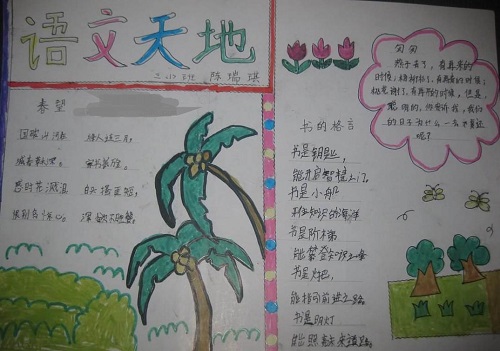 语文天地
三(1)班 陈瑞琪
春望
国破山河在 烽火连三月,
城春草木深。 家书抵万金。
感时花溅泪 白头搔更短,
恨别鸟惊心。 浑欲不胜簪。
书的格言
书是钥匙,
能开启智慧之门。
书是小船
书是阶梯
书是灯把,
能指引前进之路。
书是明灯
能照亮未来道路。
匆匆
燕子去了,有再来的
时候;杨柳枯了,有再青的时候;
桃花谢了,有再开的时候。但是,
聪明的,你告诉我,我们
的日子为什么一去不复返
呢?